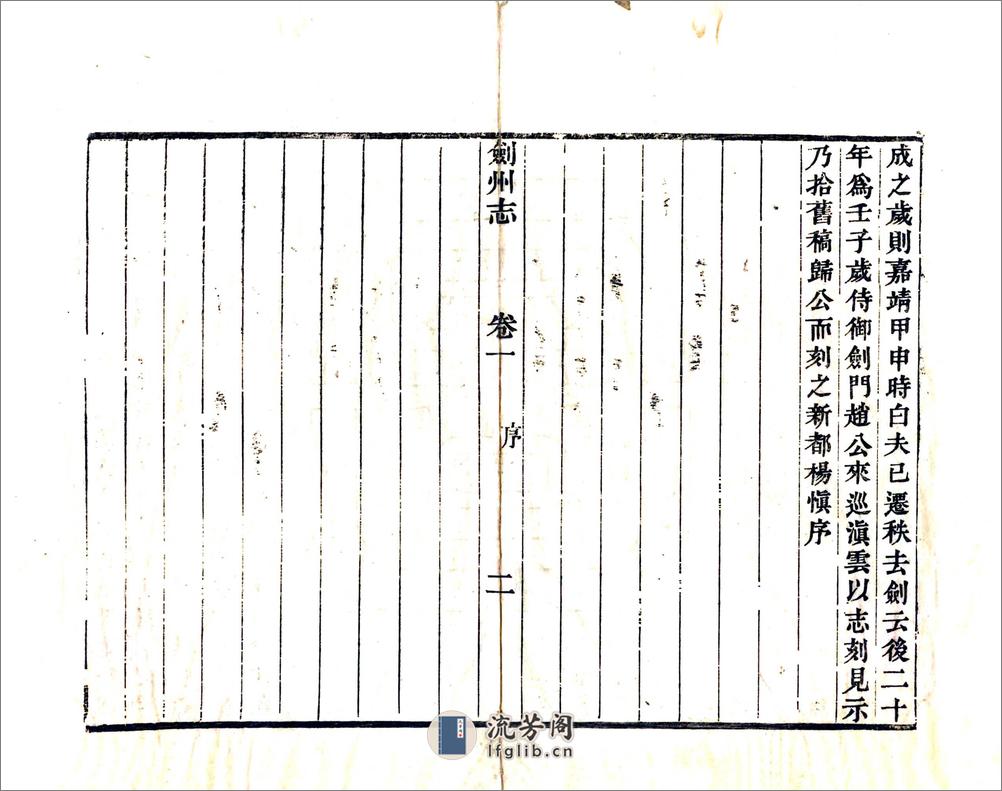 成之歲則嘉靖甲申時白夫已遷秩去劍云後二十
年為壬子歲侍御劍門趙公來巡滇雲以志刻見示
乃拾舊稿歸公而刻之新都楊慎序
劍州志 卷一 序 二
流芳阁
lfglib.cn